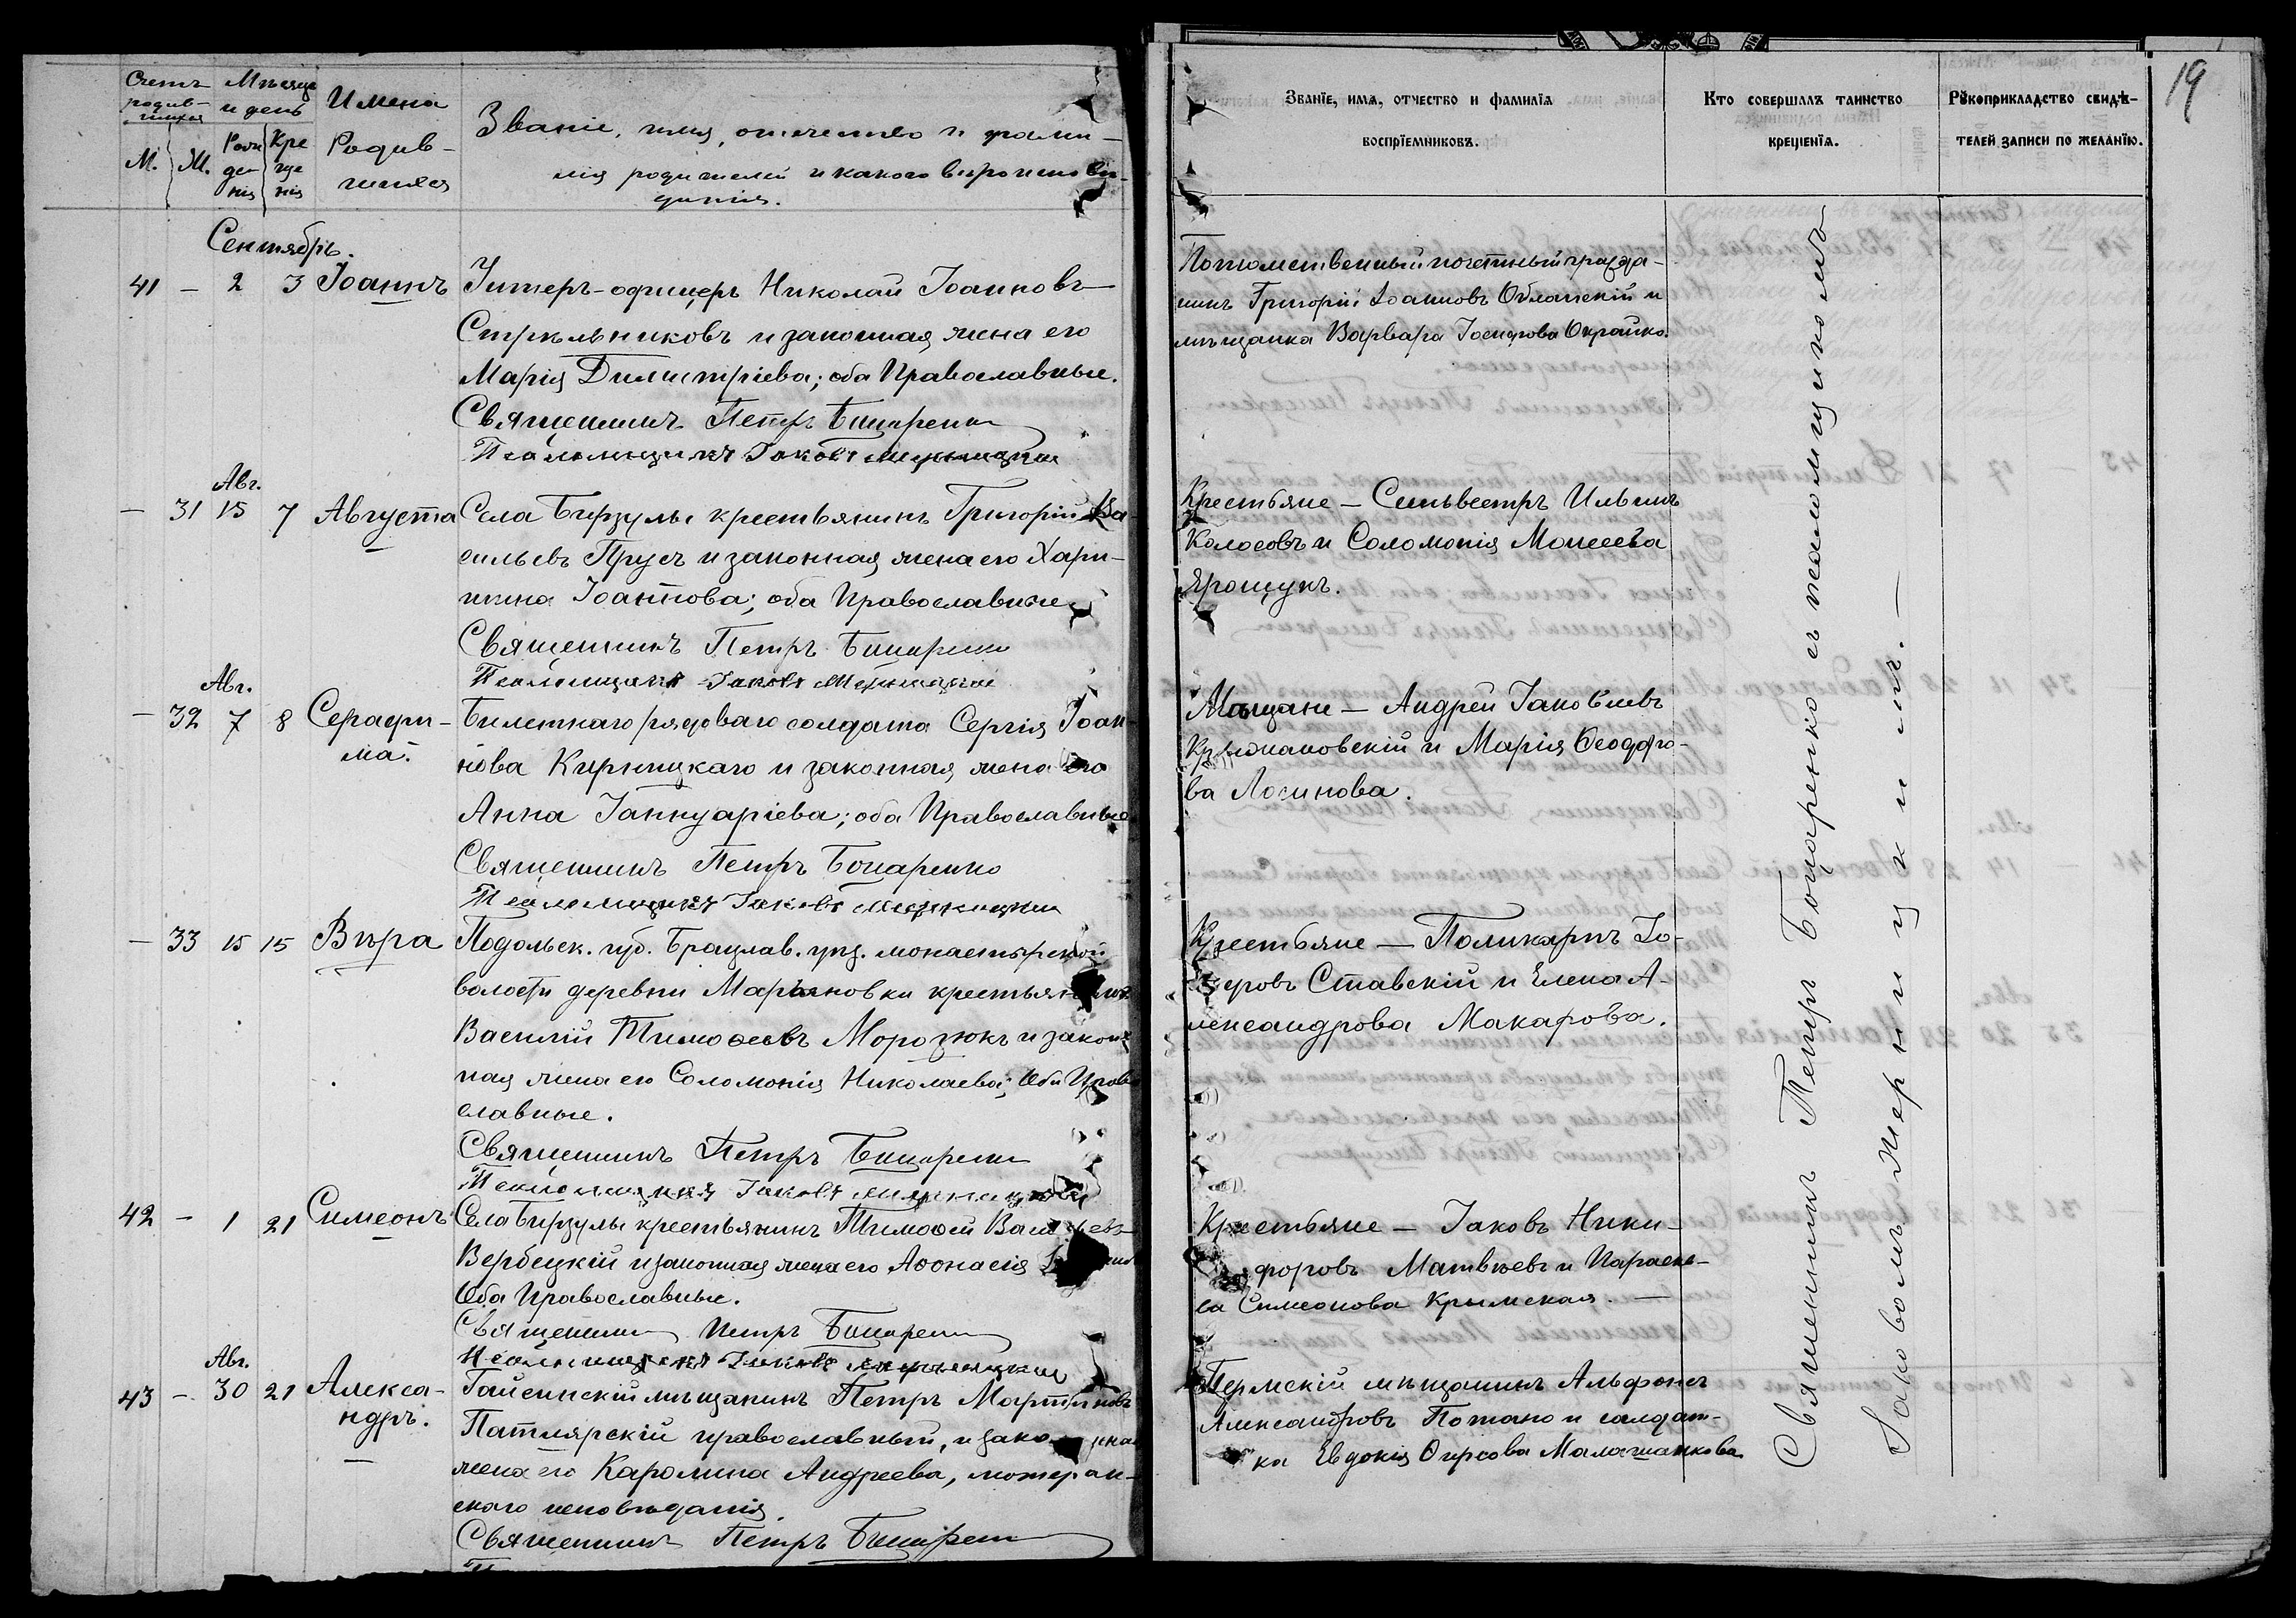 Счетъ родив-шихся
Мѣсяцъ и день
Имена Родив-шихся
Званіе, имя, отчество и фами-
лія родителей и какого вѣроисповѣ-
данія.
М. Ж. Рожденія Крещенія
Сентябрь.
41 — 2 3 Іоаннъ Унтеръ-офицеръ Николай Іоанновъ
Стрѣльниковъ и законная жена его
Марія Димитріева; оба Православные.
Священникъ Петръ Боцаренко
Псаломщикъ Іаковъ
Авг.
— 31 15 7 Августа Села Бирзулы крестьянинъ Григорій Ва-
сильевъ Прусъ и законная жена его Хари-
тина Іоаннова; оба Православные
Священникъ Петръ Боцаренко
Псаломщикъ Іаковъ
Авг.
— 32 7 8 Серафи- Билетнаго рядоваго солдата Сергія Іоан-
ма. нова Кирницкаго и законная жена его
Анна Іаннуаріева; оба Православные
Священникъ Петръ Боцаренко
Псаломщикъ Іаковъ
— 33 15 15 Вѣра Подольск. губ. Брацлав. уѣз. монастырской
волости деревни Марьяновки крестьянинъ
Василій Тимоѳеевъ Морозюкъ и закон-
ная жена его Соломонія Николаева; Оба Право
славные.
Священникъ Петръ Боцаренко
Псаломщикъ Іаковъ
42 — 1 21 Симеонъ Села Бирзулы крестьянинъ Тимоѳей Васильевъ
Вербецкій и законная жена его Аѳонасія
Оба Православные.
Священникъ Петръ Боцаренко
Псаломщикъ Іаковъ
Авг.
43 — 30 21 Алекса- Гайсинскій мѣщанинъ Петръ Мартиновъ
ндръ. Патлярскій православный, и законная
жена его Каролина Андреева, лютеран-
скаго исповѣданія.
Священникъ Петръ Боцаренко
19
Званіе, имя, отчество и фамилія
воспріемниковъ.
Кто совершалъ таинство
крещенія.
Рукоприкладство свидѣ-
телей записи по желанію.
Потомственный почетный гражда-
нинъ Григорій Іоанновъ и
мѣщанка Варвара Іосифова Окрайко.
Крестьяне — Сильвестръ Ильинъ
Колосовъ и Соломонія Моисеева
Ярощукъ.
Мѣщане — Андрей Іаковлевъ
Крыжановскій и Марія Ѳеодоро-
ва Логинова.
Крестьяне — Поликарпъ Іо-
сифовъ Ставскій и Елена А-
лександрова Макарова.
Крестьяне — Іаковъ Ники-
форовъ Матвѣевъ и Параске-
ва Симеонова Крымская. —
Пермскій мѣщанинъ Альфонсъ
Александровъ Потано и солдат-
ка Евдокія Ѳирсова Малашанкова
Священникъ Петръ Боцаренко съ псаломщикомъ
Іаковомъ Мерницкимъ. —